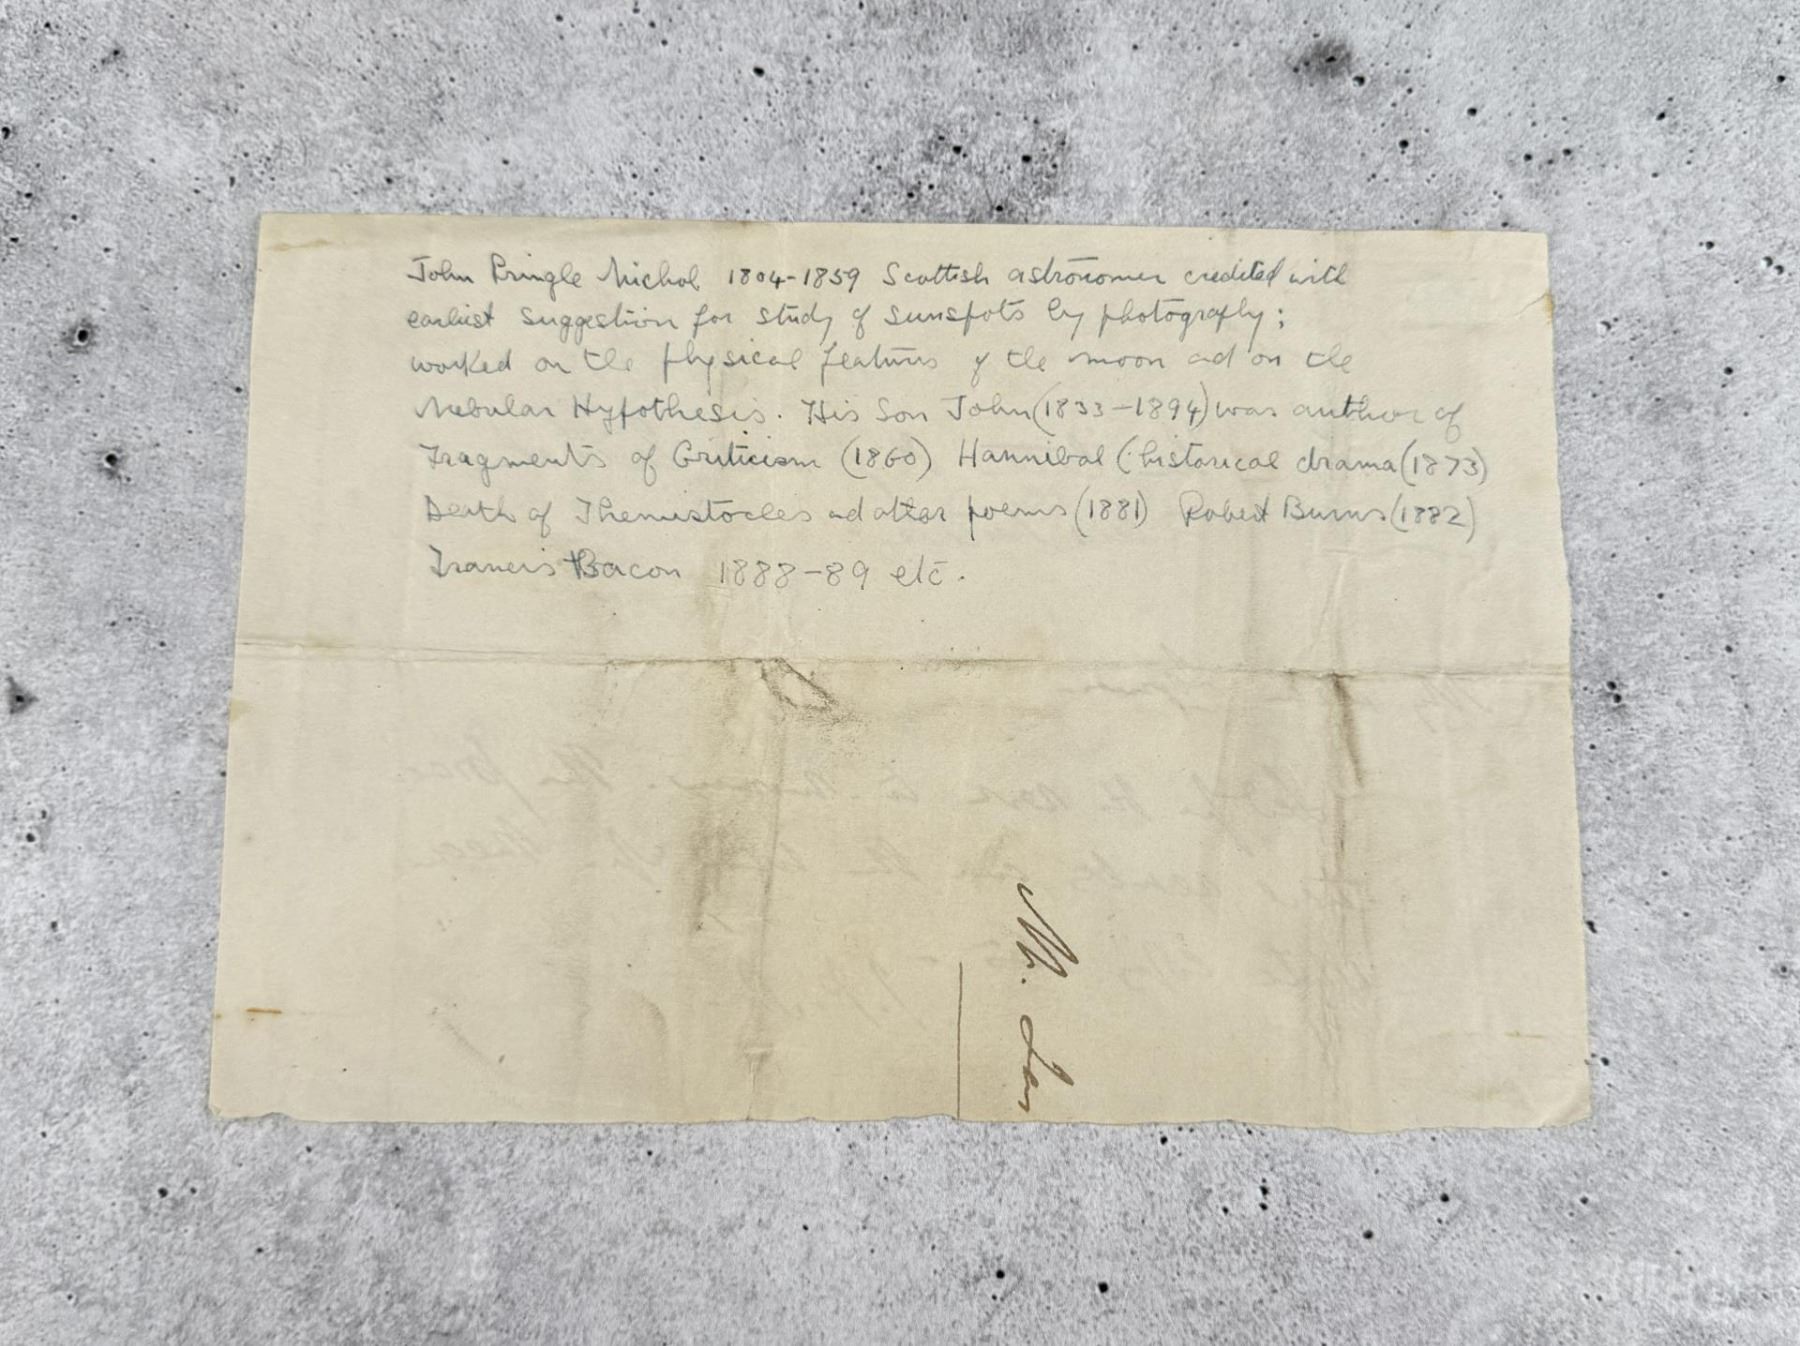 John Pringle Nichol 1804-1859 Scottish astronomer credited with
earliest suggestion for study of sunspots by photography;
worked on the physical features of the moon and on the
Nebular Hypothesis. His Son John (1833-1894) was author of
Fragments of Criticism (1860) Hannibal (historical drama (1873)
Death of Themistocles and other poems (1881) Robert Burns (1882)
Francis Bacon 1888-89 etc.
Mr.